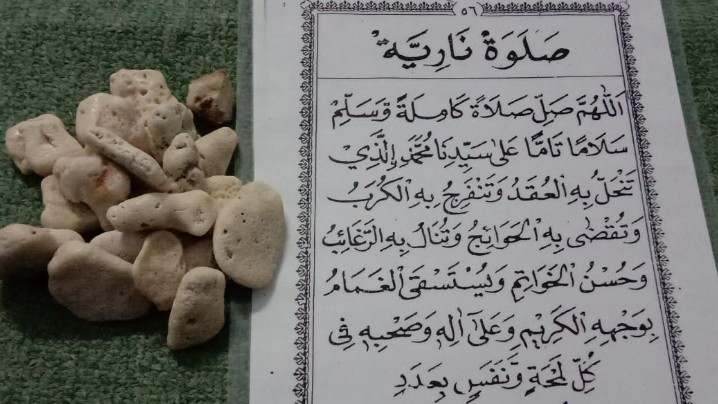 ٥٦
صَلَوَةْ نَارِيَّةْ
اَللّٰهُمَّ صَلِّ صَلَاةً كَامِلَةً وَسَلِّمْ
سَلَامًا تَامًّا عَلٰى سَيِّدِنَا مُحَمَّدِ ࣙالَّذِي
تَنْحَلُّ بِهِ الْعُقَدُ وَتَنْفَرِجُ بِهِ الْكُرَبُ
وَتُقْضٰى بِهِ الْحَوَائِجُ وَتُنَالُ بِهِ الرَّغَائِبُ
وَحُسْنُ الْخَوَاتِمِ وَيُسْتَسْقَى الْغَمَامُ
بِوَجْهِهِ الْكَرِيْمِ وَعَلٰى اٰلِهِ وَصَحْبِهِ فِي
كُلِّ لَمْحَةٍ وَنَفَسٍ بِعَدَدِ